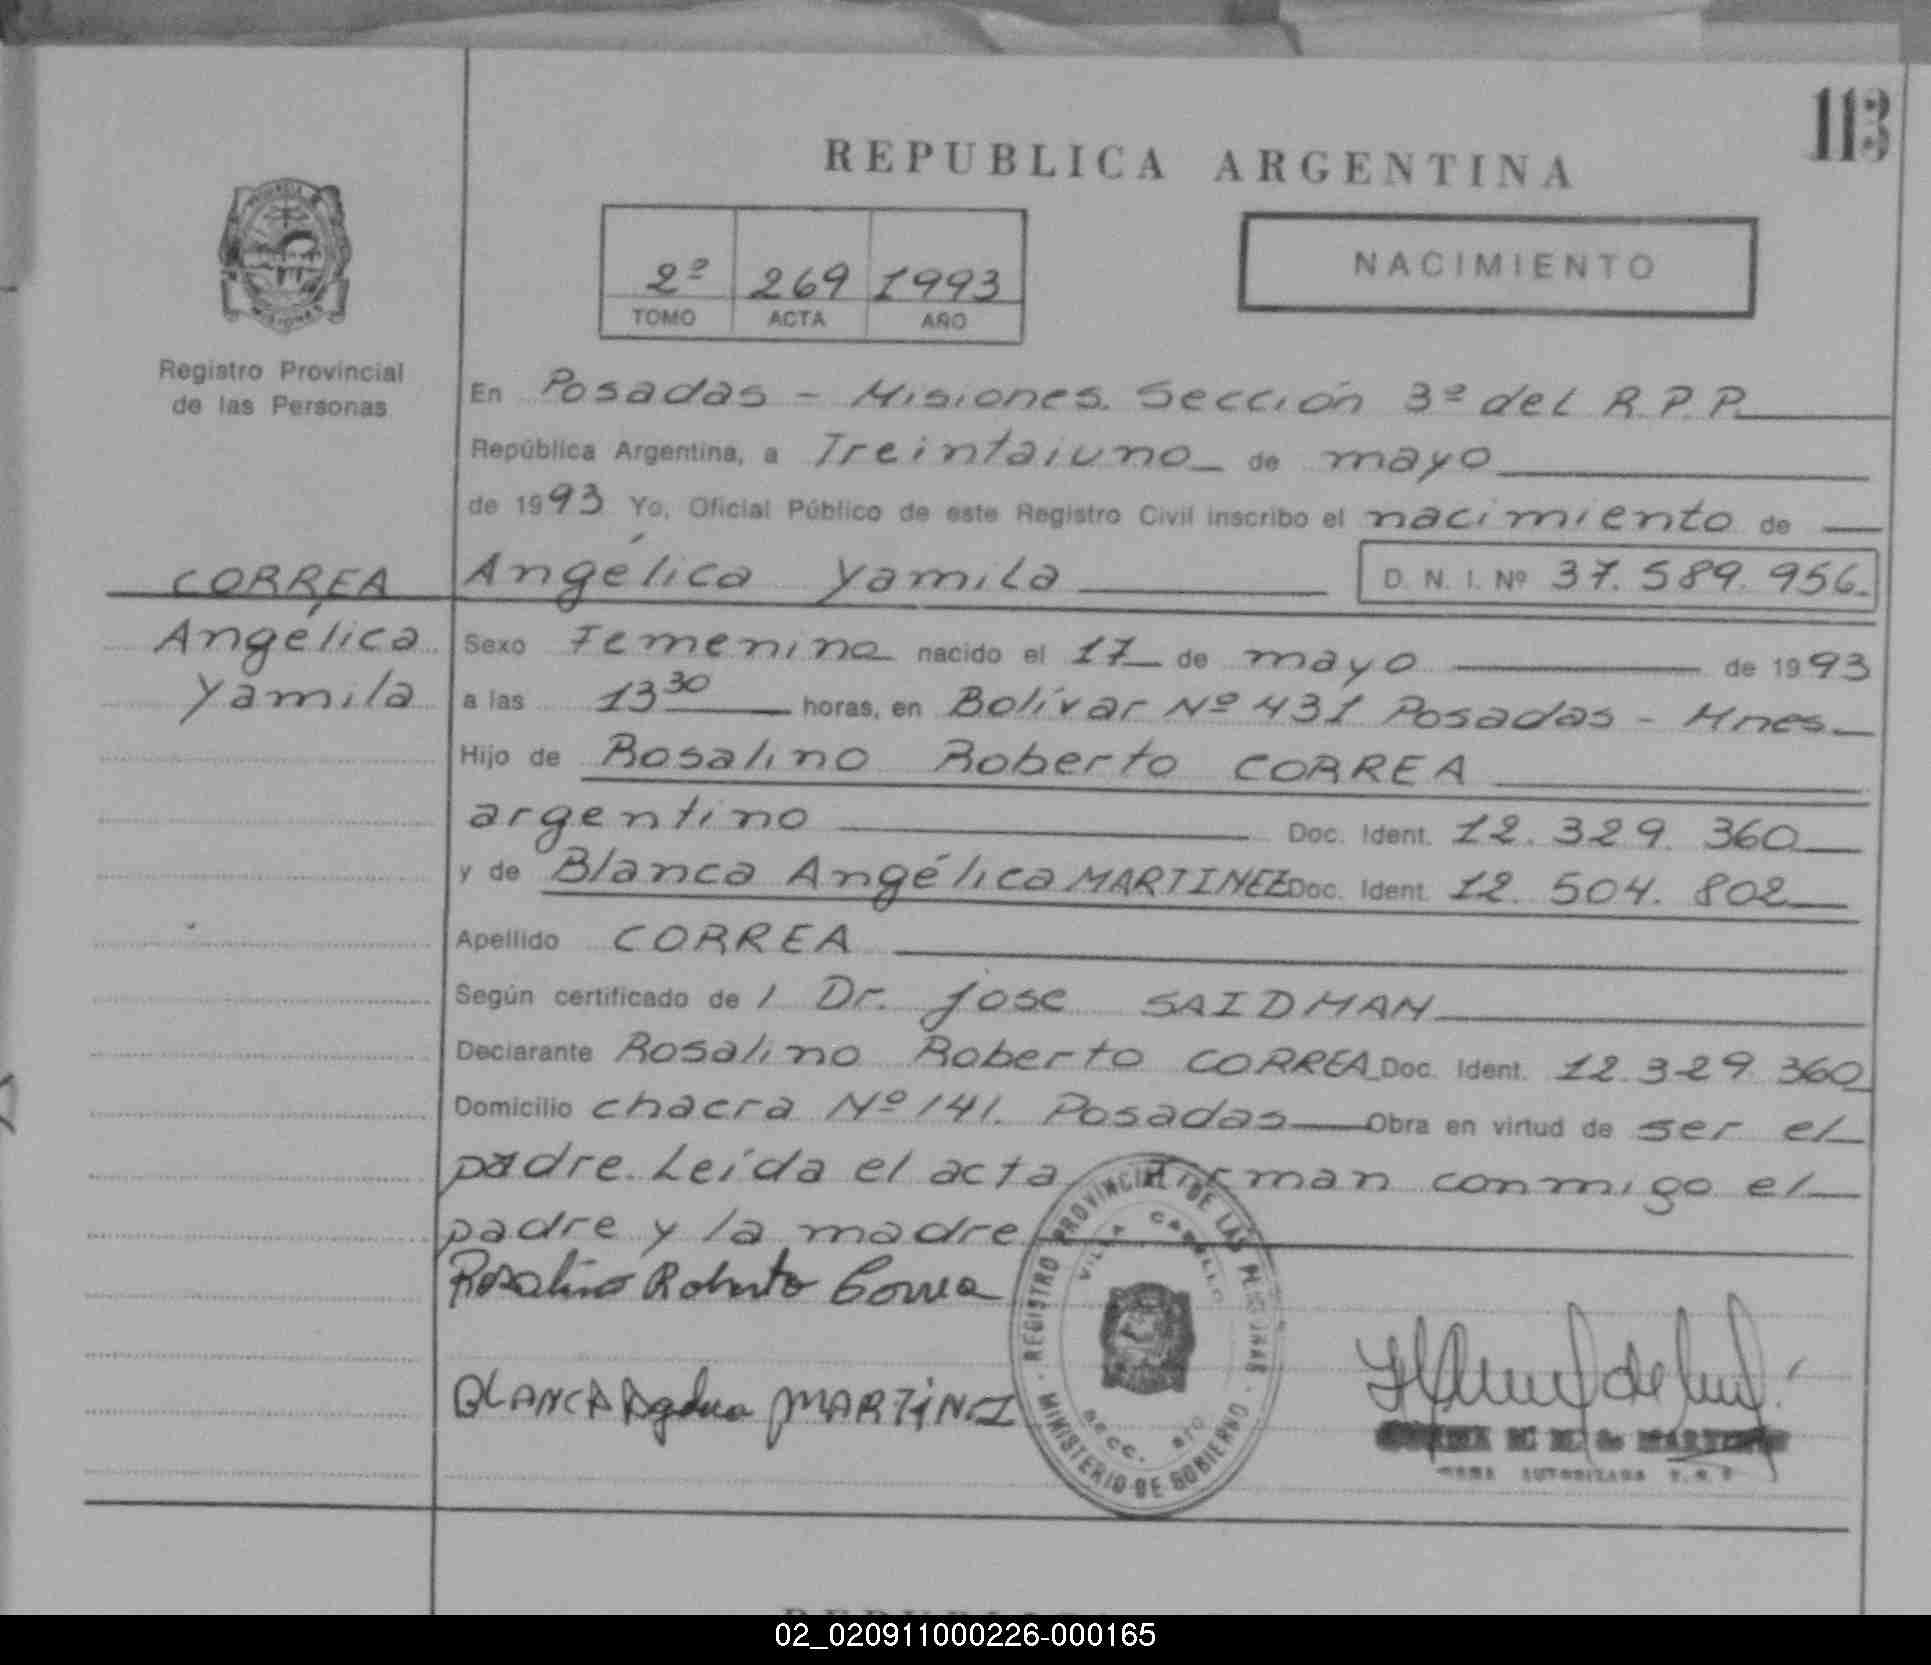 113
REPUBLICA ARGENTINA
2º 269 1993
TOMO ACTA AÑO
NACIMIENTO
Registro Provincial
de las Personas
En Posadas - Misiones. Sección 3ª del R.P.P.
República Argentina, a Treintaiuno de mayo
de 1993 Yo, Oficial Público de este Registro Civil inscribo el nacimiento de
Angélica Yamila D. N. I. Nº 37.589.956.
CORREA
Angélica
Yamila
Sexo Femenino nacido el 17 de mayo de 1993
a las 13 30 horas, en Bolívar Nº 431 Posadas - Mnes.
Hijo de Rosalino Roberto CORREA
argentino Doc. Ident. 12.329.360
y de Blanca Angélica MARTINEZ Doc. Ident. 12.504.802
Apellido CORREA
Según certificado de / Dr. José SAIDMAN
Declarante Rosalino Roberto CORREA Doc. Ident. 12.329.360
Domicilio chacra Nº 141. Posadas Obra en virtud de ser el
padre. Leída el acta, firman conmigo el
padre y la madre
Rosalino Roberto Correa
BLANCA MARTINEZ
REGISTRO PROVINCIAL DE LAS PERSONAS
VILLA CABELLO
SECC.
MINISTERIO DE GOBIERNO
02_020911000226-000165